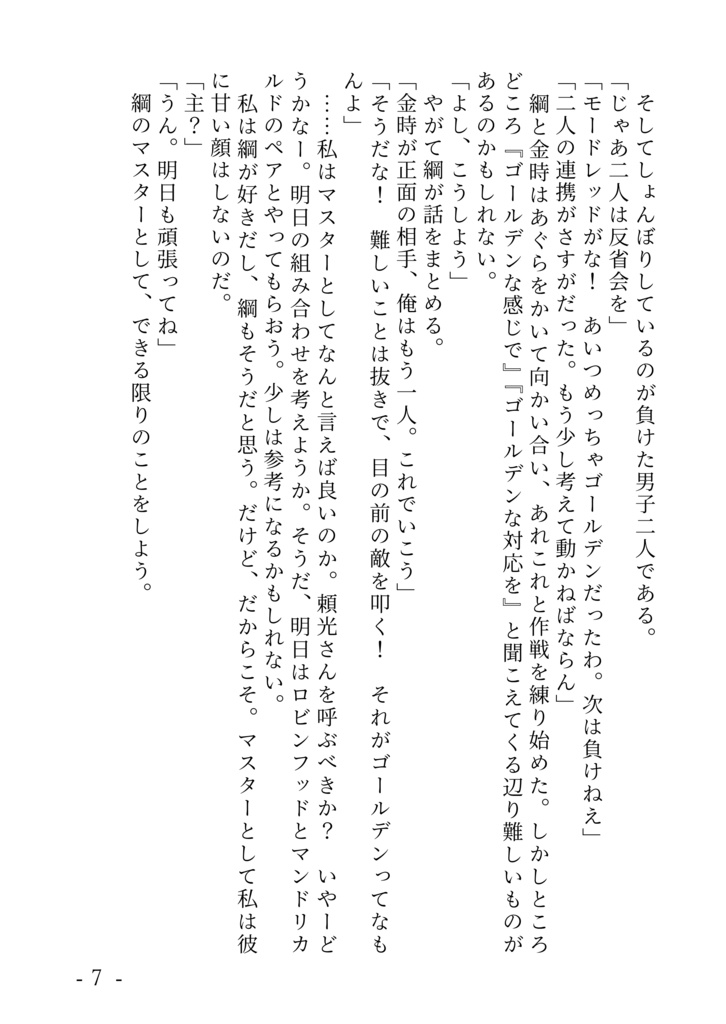 そしてしょんぼりしているのが負けた男子二人である。
「じゃあ二人は反省会を」
「モードレッドがな！　あいつめっちゃゴールデンだったわ。次は負けねえ」
「二人の連携がさすがだった。もう少し考えて動かねばならん」
　綱と金時はあぐらをかいて向かい合い、あれこれと作戦を練り始めた。しかしところ
どころ『ゴールデンな感じで』『ゴールデンな対応を』と聞こえてくる辺り難しいものが
あるのかもしれない。
「よし、こうしよう」
　やがて綱が話をまとめる。
「金時が正面の相手、俺はもう一人。これでいこう」
「そうだな！　難しいことは抜きで、目の前の敵を叩く！　それがゴールデンってなも
んよ」
　……私はマスターとしてなんと言えば良いのか。頼光さんを呼ぶべきか？　いやーど
うかなー。明日の組み合わせを考えようか。そうだ、明日はロビンフッドとマンドリカ
ルドのペアとやってもらおう。少しは参考になるかもしれない。
　私は綱が好きだし、綱もそうだと思う。だけど、だからこそ。マスターとして私は彼
に甘い顔はしないのだ。
「主？」
「うん。明日も頑張ってね」
　綱のマスターとして、できる限りのことをしよう。
- 7 -